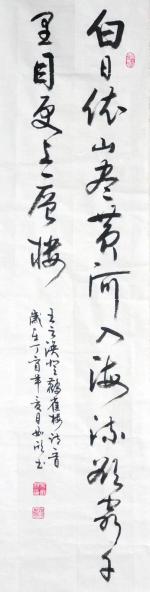 白日依山尽黄河入海流欲穷千
里目更上一层楼
王之涣登鹳雀楼诗一首
岁在丁酉年亥月